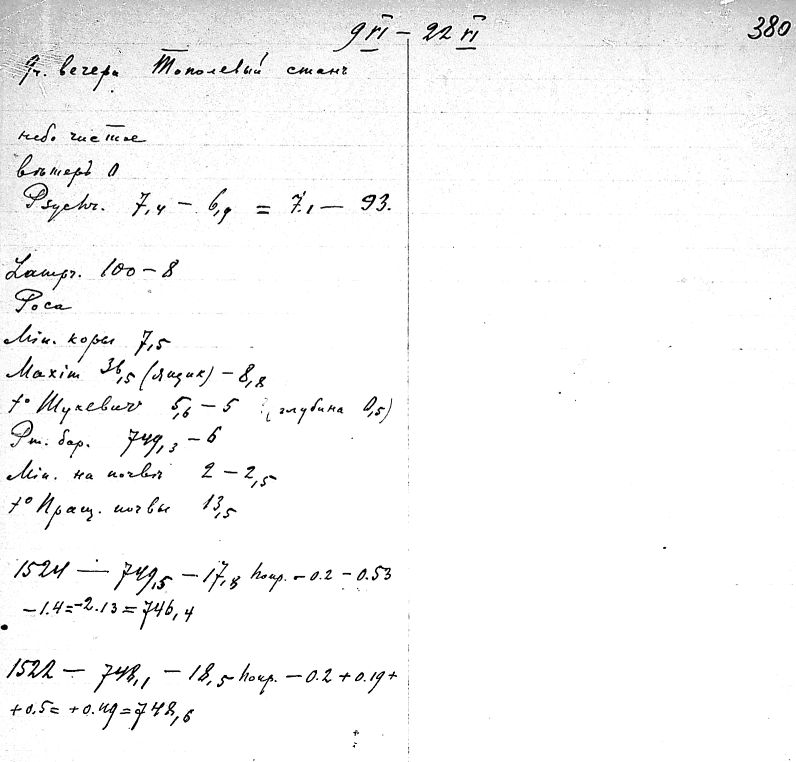 9 VI – 22 VI
380
9ч. вечера Тополевый станъ
небо чистое
вѣтеръ 0
Psychr. 7,4 – 6,9 = 7.1 – 93.
Lampr. 100 – 8
Роса
Min. коры 7,5
Maxim 36,5 (ящик) – 8,8
t° Жукевич 5,6 – 5 (глубина 0,5)
Рт. бар. 749,3 – 6
Min. на почвѣ 2 – 2,5
t° Пращ. почвы 13,5
1524 — 749,5 – 17,8 попр. – 0.2 – 0.53
– 1.4 = – 2.13 = 746,4
1522 — 748,1 – 18,5 попр. – 0.2 + 0.19 +
+ 0.5 = + 0.49 = 748,6